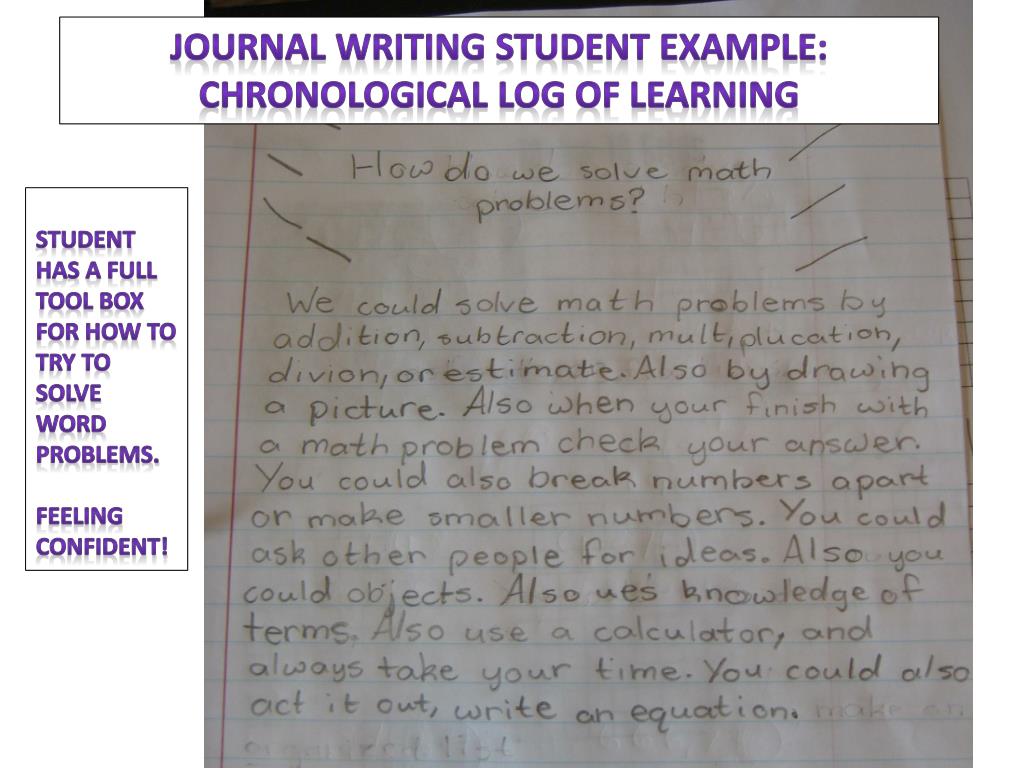 JOURNAL WRITING STUDENT EXAMPLE:
CHRONOLOGICAL LOG OF LEARNING
STUDENT
HAS A FULL
TOOL BOX
FOR HOW TO
TRY TO
SOLVE
WORD
PROBLEMS.
FEELING
CONFIDENT!
How do we solve math
problems?
We could solve math problems by
addition, subtraction, mult,plucation,
divion, or estimate. Also by drawing
a picture. Also when your finish with
a math problem check your answer.
You could also break numbers apart
or make smaller numbers. You could
ask other people for ideas. Also you
could objects. Also ues knowledge of
terms. Also use a calculator, and
always take your time. You could also
act it out, write an equation. make an
organized list